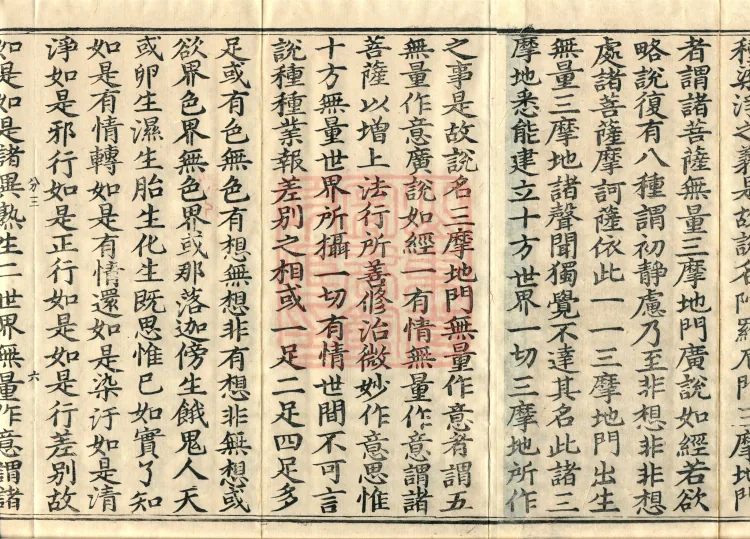 種染浄之義是故說名陁羅尼門三摩地門
者謂諸菩薩無量三摩地門廣說如經若欲
略說復有八種謂初静慮乃至非想非非想
處諸菩薩摩訶薩依此一一三摩地門出生
無量三摩地諸聲聞獨覺不達其名此諸三
摩地悉能建立十方世界一切三摩地所作
之事是故說名三摩地門無量作意者謂五
無量作意廣說如經一有情無量作意謂諸
菩薩以增上法行所善修治微妙作意思惟
十方無量世界所攝一切有情世間不可言
說種種業報差別之相或一足二足四足多
足或有色無色有想無想非有想非無想或
欲界色界無色界或那落迦傍生餓鬼人天
或卵生濕生胎生化生既思惟已如實了知
如是有情轉如是有情還如是染汙如是清
淨如是邪行如是正行如是如是行差別故
分三 六
如是如是諸異熟生二世界無量作意謂諸